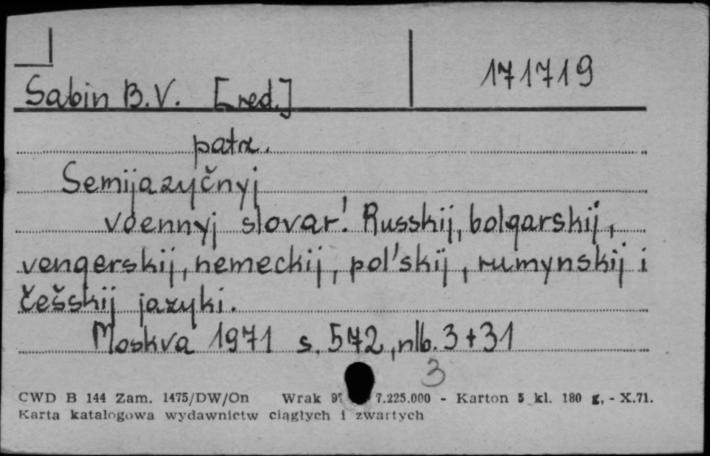 171719
Sabin B.V. [red.]
patrz.
Semijazyčnyj
voennyj slovar'. Russkij, bolgarskij,
vengerskij, nemeckij, pol'skij, rumynskij i
češskij jazyki.
Moskva 1971 s. 572, nlb. 3 + 31
3
CWD B 144 Zam. 1475/DW/On Wrak 7.225.000 - Karton 5 kl. 180 g, - X.71.
Karta katalogowa wydawnictw ciągłych i zwartych